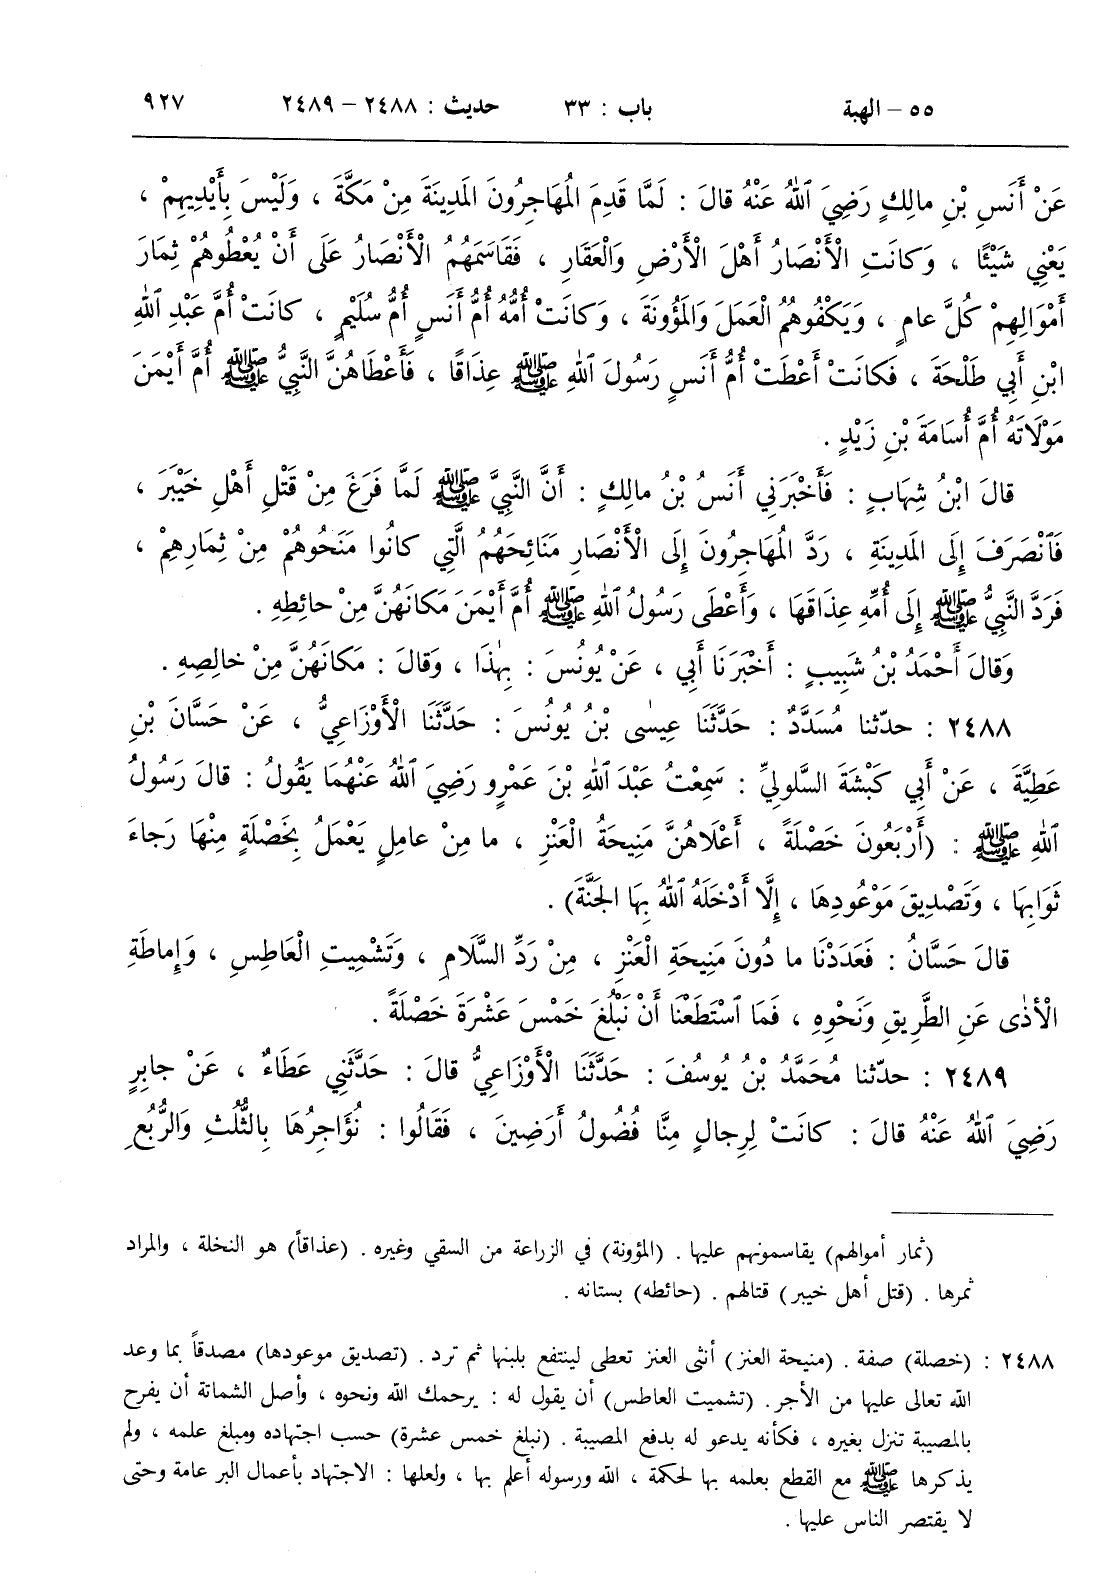 ٥٥ – الهبة باب : ٣٣ حديث : ٢٤٨٨ – ٢٤٨٩ ٩٢٧
عَنْ أَنَسِ بْنِ مالِكٍ رَضِيَ ٱللهُ عَنْهُ قالَ : لَمَّا قَدِمَ الْمُهَاجِرُونَ المَدِينَةَ مِنْ مَكَّةَ ، وَلَيْسَ بِأَيْدِيهِمْ ،
يَعْنِي شَيْئًا ، وَكانَتِ الْأَنْصَارُ أَهْلَ الْأَرْضِ وَالْعَقَارِ ، فَقَاسَمَهُمُ الْأَنْصَارُ عَلَى أَنْ يُعْطُوهُمْ ثِمَارَ
أَمْوَالِهِمْ كُلَّ عامٍ ، وَيَكْفُوهُمُ الْعَمَلَ وَالمَؤُونَةَ ، وَكانَتْ أُمُّهُ أُمُّ أَنَسٍ أُمُّ سُلَيْمٍ ، كانَتْ أُمَّ عَبْدِ ٱللهِ
ابْنِ أَبِي طَلْحَةَ ، فَكانَتْ أَعْطَتْ أُمُّ أَنَسٍ رَسُولَ ٱللهِ ﷺ عِذَاقًا ، فَأَعْطَاهُنَّ النَّبِيُّ ﷺ أُمَّ أَيْمَنَ
مَوْلَاتَهُ أُمَّ أُسَامَةَ بْنِ زَيْدٍ .
قالَ ابْنُ شِهَابٍ : فَأَخْبَرَنِي أَنَسُ بْنُ مالِكٍ : أَنَّ النَّبِيَّ ﷺ لَمَّا فَرَغَ مِنْ قَتْلِ أَهْلِ خَيْبَرَ ،
فَٱنْصَرَفَ إِلَى المَدِينَةِ ، رَدَّ الْمُهَاجِرُونَ إِلَى الْأَنْصَارِ مَنَائِحَهُمُ الَّتِي كانُوا مَنَحُوهُمْ مِنْ ثِمَارِهِمْ ،
فَرَدَّ النَّبِيُّ ﷺ إِلَى أُمِّهِ عِذَاقَهَا ، وَأَعْطَى رَسُولُ ٱللهِ ﷺ أُمَّ أَيْمَنَ مَكَانَهُنَّ مِنْ حائِطِهِ .
وَقالَ أَحْمَدُ بْنُ شَبِيبٍ : أَخْبَرَنَا أَبِي ، عَنْ يُونُسَ : بِهٰذَا ، وَقالَ : مَكانَهُنَّ مِنْ خالِصِهِ .
٢٤٨٨ : حدّثنا مُسَدَّدٌ : حَدَّثَنَا عِيسٰى بْنُ يُونُسَ : حَدَّثَنَا الْأَوْزَاعِيُّ ، عَنْ حَسَّانَ بْنِ
عَطِيَّةَ ، عَنْ أَبِي كَبْشَةَ السَّلُولِيِّ : سَمِعْتُ عَبْدَ ٱللهِ بْنَ عَمْرٍو رَضِيَ ٱللهُ عَنْهُمَا يَقُولُ : قالَ رَسُولُ
ٱللهِ ﷺ : (أَرْبَعُونَ خَصْلَةً ، أَعْلَاهُنَّ مَنِيحَةُ الْعَنْزِ ، ما مِنْ عامِلٍ يَعْمَلُ بِخَصْلَةٍ مِنْهَا رَجاءَ
ثَوَابِهَا ، وَتَصْدِيقَ مَوْعُودِهَا ، إِلَّا أَدْخَلَهُ ٱللهُ بِهَا الجَنَّةَ) .
قالَ حَسَّانُ : فَعَدَدْنَا ما دُونَ مَنِيحَةِ الْعَنْزِ ، مِنْ رَدِّ السَّلَامِ ، وَتَشْمِيتِ الْعَاطِسِ ، وَإِماطَةِ
الْأَذٰى عَنِ الطَّرِيقِ وَنَحْوِهِ ، فَمَا ٱسْتَطَعْنَا أَنْ نَبْلُغَ خَمْسَ عَشْرَةَ خَصْلَةً .
٢٤٨٩ : حدّثنا مُحَمَّدُ بْنُ يُوسُفَ : حَدَّثَنَا الْأَوْزَاعِيُّ قالَ : حَدَّثَنِي عَطَاءٌ ، عَنْ جابِرٍ
رَضِيَ ٱللهُ عَنْهُ قالَ : كانَتْ لِرِجالٍ مِنَّا فُضُولُ أَرَضِينَ ، فَقَالُوا : نُؤَاجِرُهَا بِالثُّلُثِ وَالرُّبُعِ
(ثمار أموالهم) يقاسمونهم عليها . (المؤونة) في الزراعة من السقي وغيره . (عذاقاً) هو النخلة ، والمراد
ثمرها . (قتل أهل خيبر) قتالهم . (حائطه) بستانه .
٢٤٨٨ : (خصلة) صفة . (منيحة العنز) أنثى العنز تعطى لينتفع بلبنها ثم ترد . (تصديق موعودها) مصدقاً بما وعد
الله تعالى عليها من الأجر . (تشميت العاطس) أن يقول له : يرحمك الله ونحوه ، وأصل الشماتة أن يفرح
بالمصيبة تنزل بغيره ، فكأنه يدعو له بدفع المصيبة . (نبلغ خمس عشرة) حسب اجتهاده ومبلغ علمه ، ولم
يذكرها ﷺ مع القطع بعلمه بها لحكمة ، الله ورسوله أعلم بها ، ولعلها : الاجتهاد بأعمال البر عامة وحتى
لا يقتصر الناس عليها .